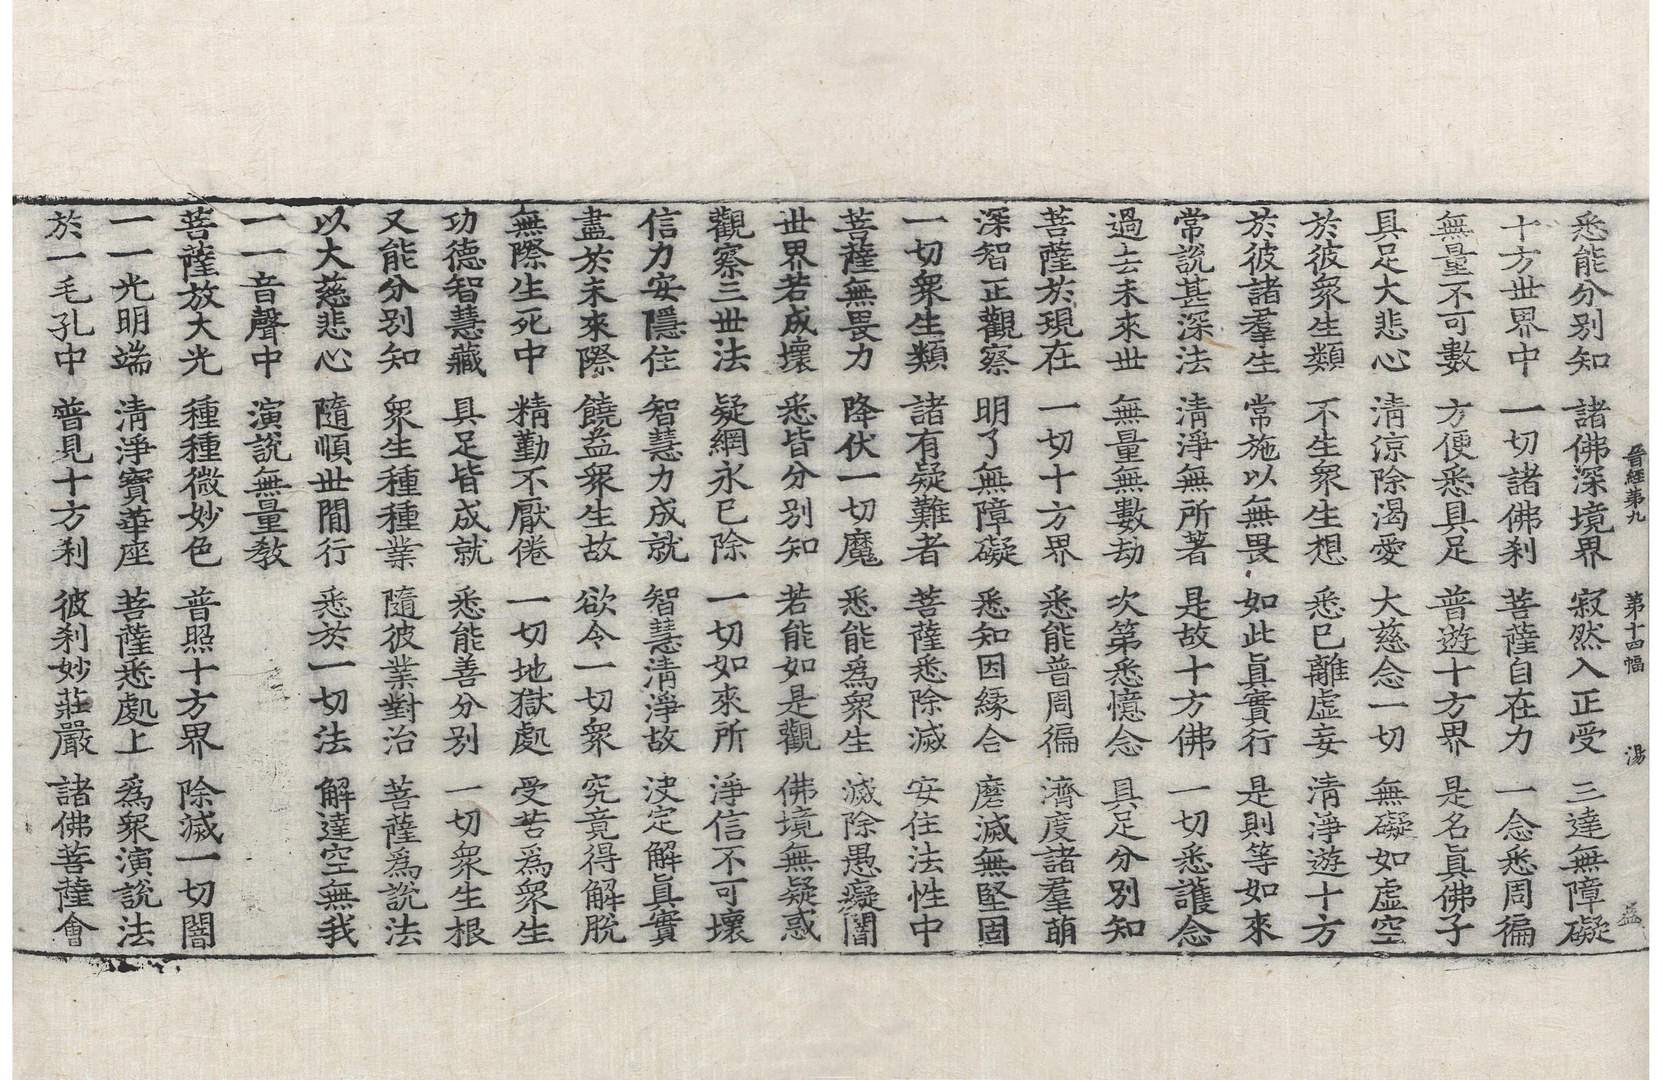 晉經第九　第十四幅　湯　益
悉能分別知　諸佛深境界　寂然入正受　三達無障礙
十方世界中　一切諸佛刹　菩薩自在力　一念悉周徧
無量不可數　方便悉具足　普遊十方界　是名眞佛子
具足大悲心　清涼除渴愛　大慈念一切　無礙如虛空
於彼衆生類　不生衆生想　悉已離虛妄　清淨遊十方
於彼諸羣生　常施以無畏　如此眞實行　是則等如來
常說甚深法　清淨無所著　是故十方佛　一切悉護念
過去未來世　無量無數劫　次第悉憶念　具足分別知
菩薩於現在　一切十方界　悉能普周徧　濟度諸羣萌
深智正觀察　明了無障礙　悉知因緣合　磨滅無堅固
一切衆生類　諸有疑難者　菩薩悉除滅　安住法性中
菩薩無畏力　降伏一切魔　悉能爲衆生　滅除愚癡闇
世界若成壞　悉皆分別知　若能如是觀　佛境無疑惑
觀察三世法　疑網永已除　一切如來所　淨信不可壞
信力安隱住　智慧力成就　智慧清淨故　決定解眞實
盡於未來際　饒益衆生故　欲令一切衆　究竟得解脫
無際生死中　精勤不厭倦　一切地獄處　受苦爲衆生
功德智慧藏　具足皆成就　悉能善分別　一切衆生根
又能分別知　衆生種種業　隨彼業對治　菩薩爲說法
以大慈悲心　隨順世間行　悉於一切法　解達空無我
一一音聲中　演說無量敎
菩薩放大光　種種微妙色　普照十方界　除滅一切闇
一一光明端　清淨寶華座　菩薩悉處上　爲衆演說法
於一毛孔中　普見十方刹　彼刹妙莊嚴　諸佛菩薩會